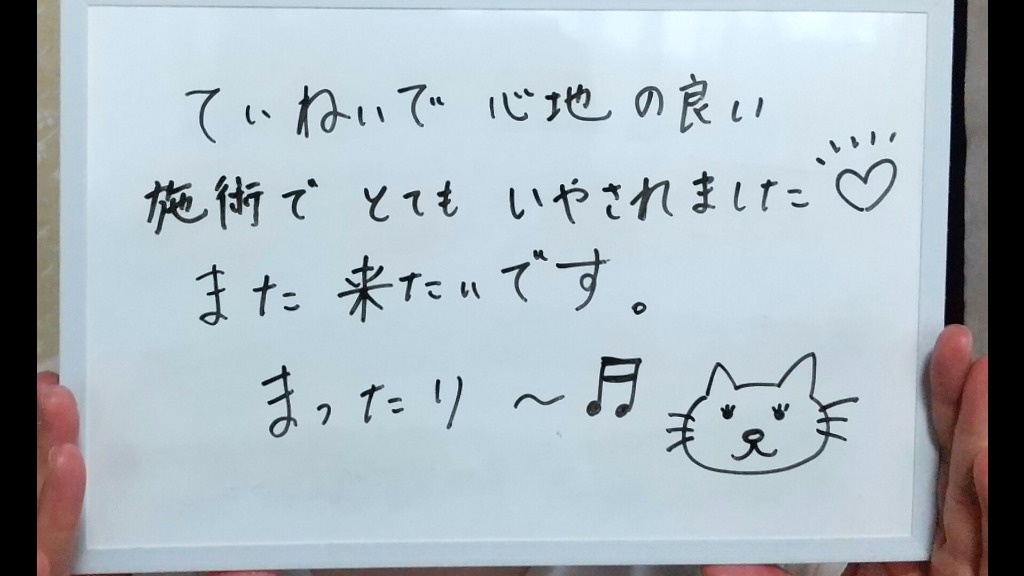 ていねいで 心地の良い
施術で とても いやされました♡
また 来たいです。
まったり〜♬